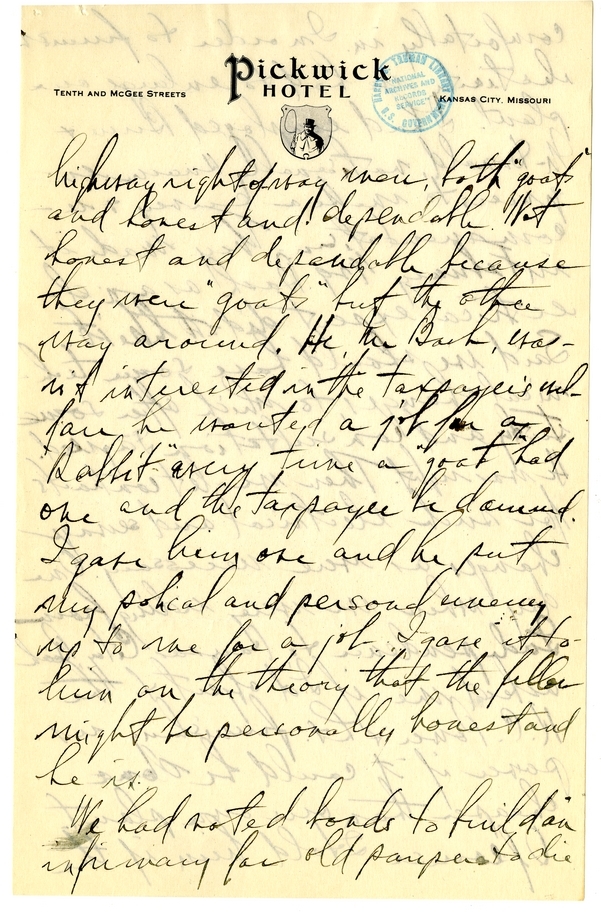 Pickwick
HOTEL
TENTH AND MCGEE STREETS
KANSAS CITY, MISSOURI
HARRY S. TRUMAN LIBRARY
NATIONAL
ARCHIVES AND
RECORDS
SERVICE
U.S. GOVERNMENT
highway right of way men, both "goats"
and honest and dependable. Not
honest and dependable because
they were "goats" but the other
way around. He, Mr. Bash, was-
n't interested in the taxpayer's wel-
fare he wanted a job for a
"Rabbit" every time a "goat" had
one and the taxpayer be damned.
I gave him one and he put
my polical and personal enemy
up to me for a job. I gave it to
him on the theory that the feller
might be personally honest and
he is.
We had voted bonds to build an
infirmary for old paupers to die